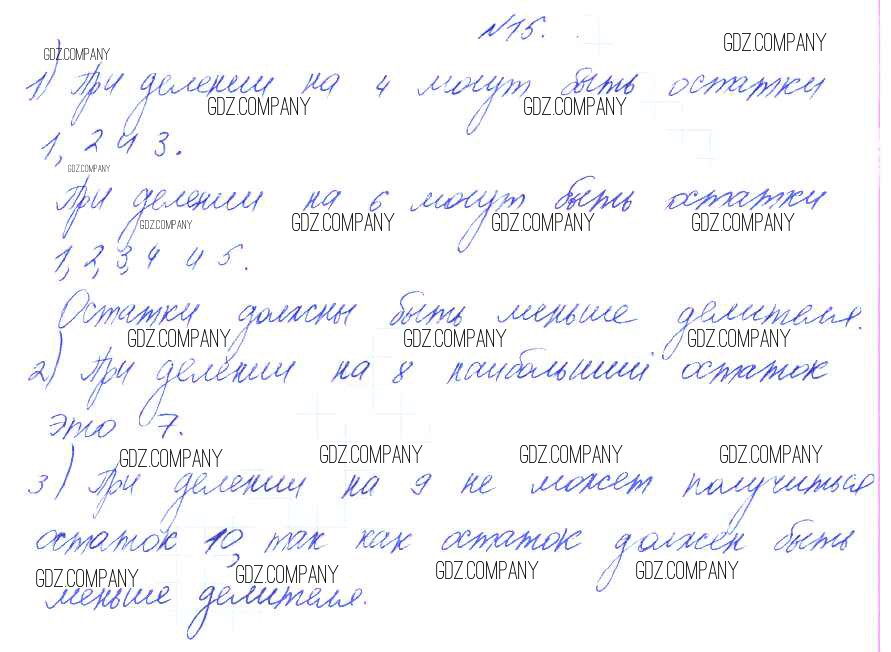 №15.
GDZ.COMPANY GDZ.COMPANY
1) При делении на 4 могут быть остатки
GDZ.COMPANY GDZ.COMPANY
1, 2 и 3.
GDZ.COMPANY
При делении на 6 могут быть остатки
GDZ.COMPANY GDZ.COMPANY GDZ.COMPANY GDZ.COMPANY
1, 2, 3, 4 и 5.
Остатки должны быть меньше делителя.
GDZ.COMPANY GDZ.COMPANY GDZ.COMPANY
2) При делении на 8 наибольший остаток
это 7.
GDZ.COMPANY GDZ.COMPANY GDZ.COMPANY GDZ.COMPANY
3) При делении на 9 не может получиться
остаток 10, так как остаток должен быть
GDZ.COMPANY GDZ.COMPANY GDZ.COMPANY GDZ.COMPANY
меньше делителя.